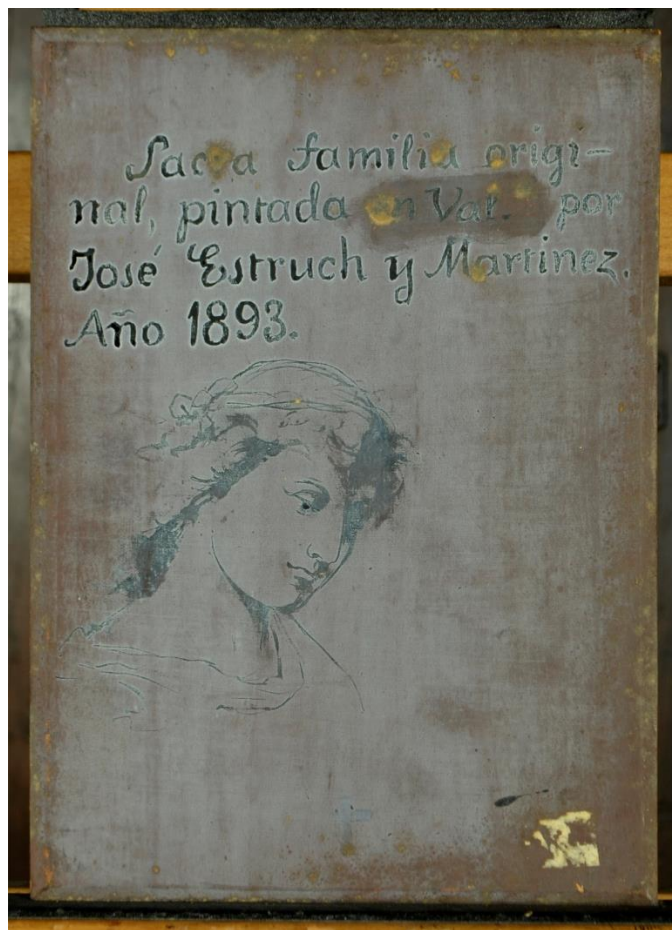 Sacra familia origi-
nal, pintada en Val. por
José Estruch y Martinez.
Año 1893.